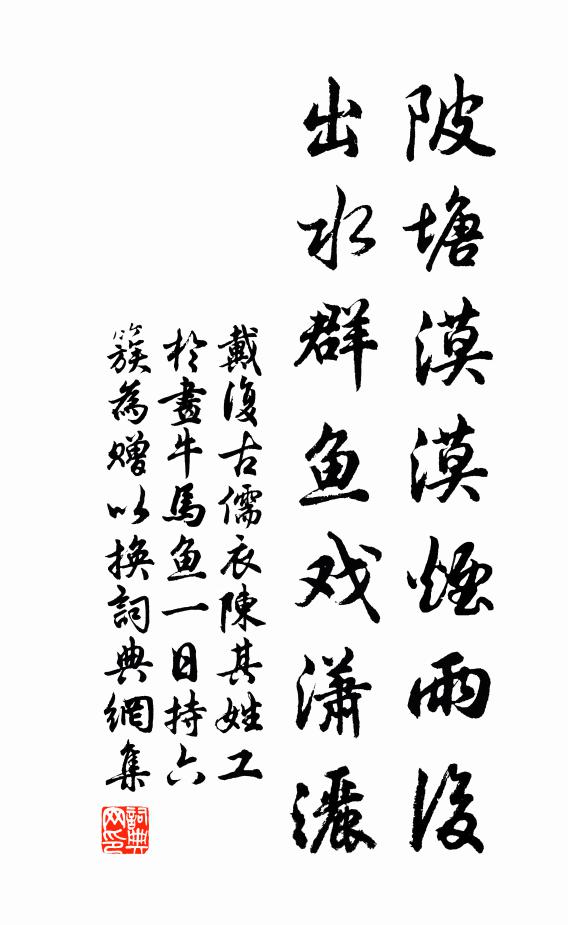 陂塘漠漠煙雨後
出水群鱼戏瀟灑
戴復古儒衣陳其姓工
於畫牛馬鱼一日持六
簇為赠以換詞典網集
詞典网印